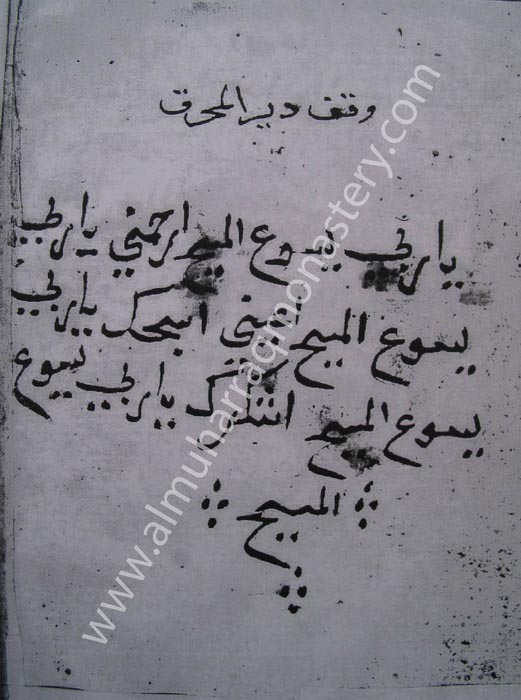 وقف دير المحرق
يا ربي يسوع المسيح ارحمني يا ربي
يسوع المسيح اعني اسبحك يا ربي
يسوع المسيح اشكرك يا ربي يسوع
المسيح
www.almuharraqmonastery.com